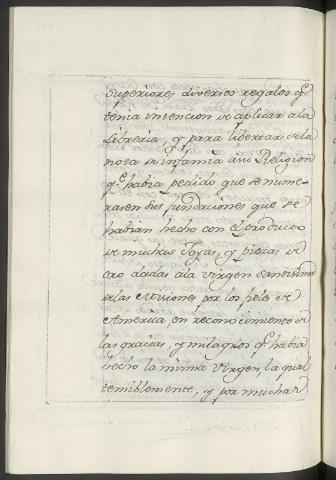 Superiores diversos regalos q.e
tenia intencion de aplicar a la
Libreria, y para libertar de la
nota de infamia a su Religion
q.e habia pedido que se nume-
rasen las fundaciones que se
habian hecho con el producto
de muchas Joyas, y piezas de
oro dadas á la Virgen Santisima
de las por los fieles de
America, en reconocimiento de
las gracias, y milagros q.e habia
hecho la misma Virgen, la qual
temiblemente, y por muchas